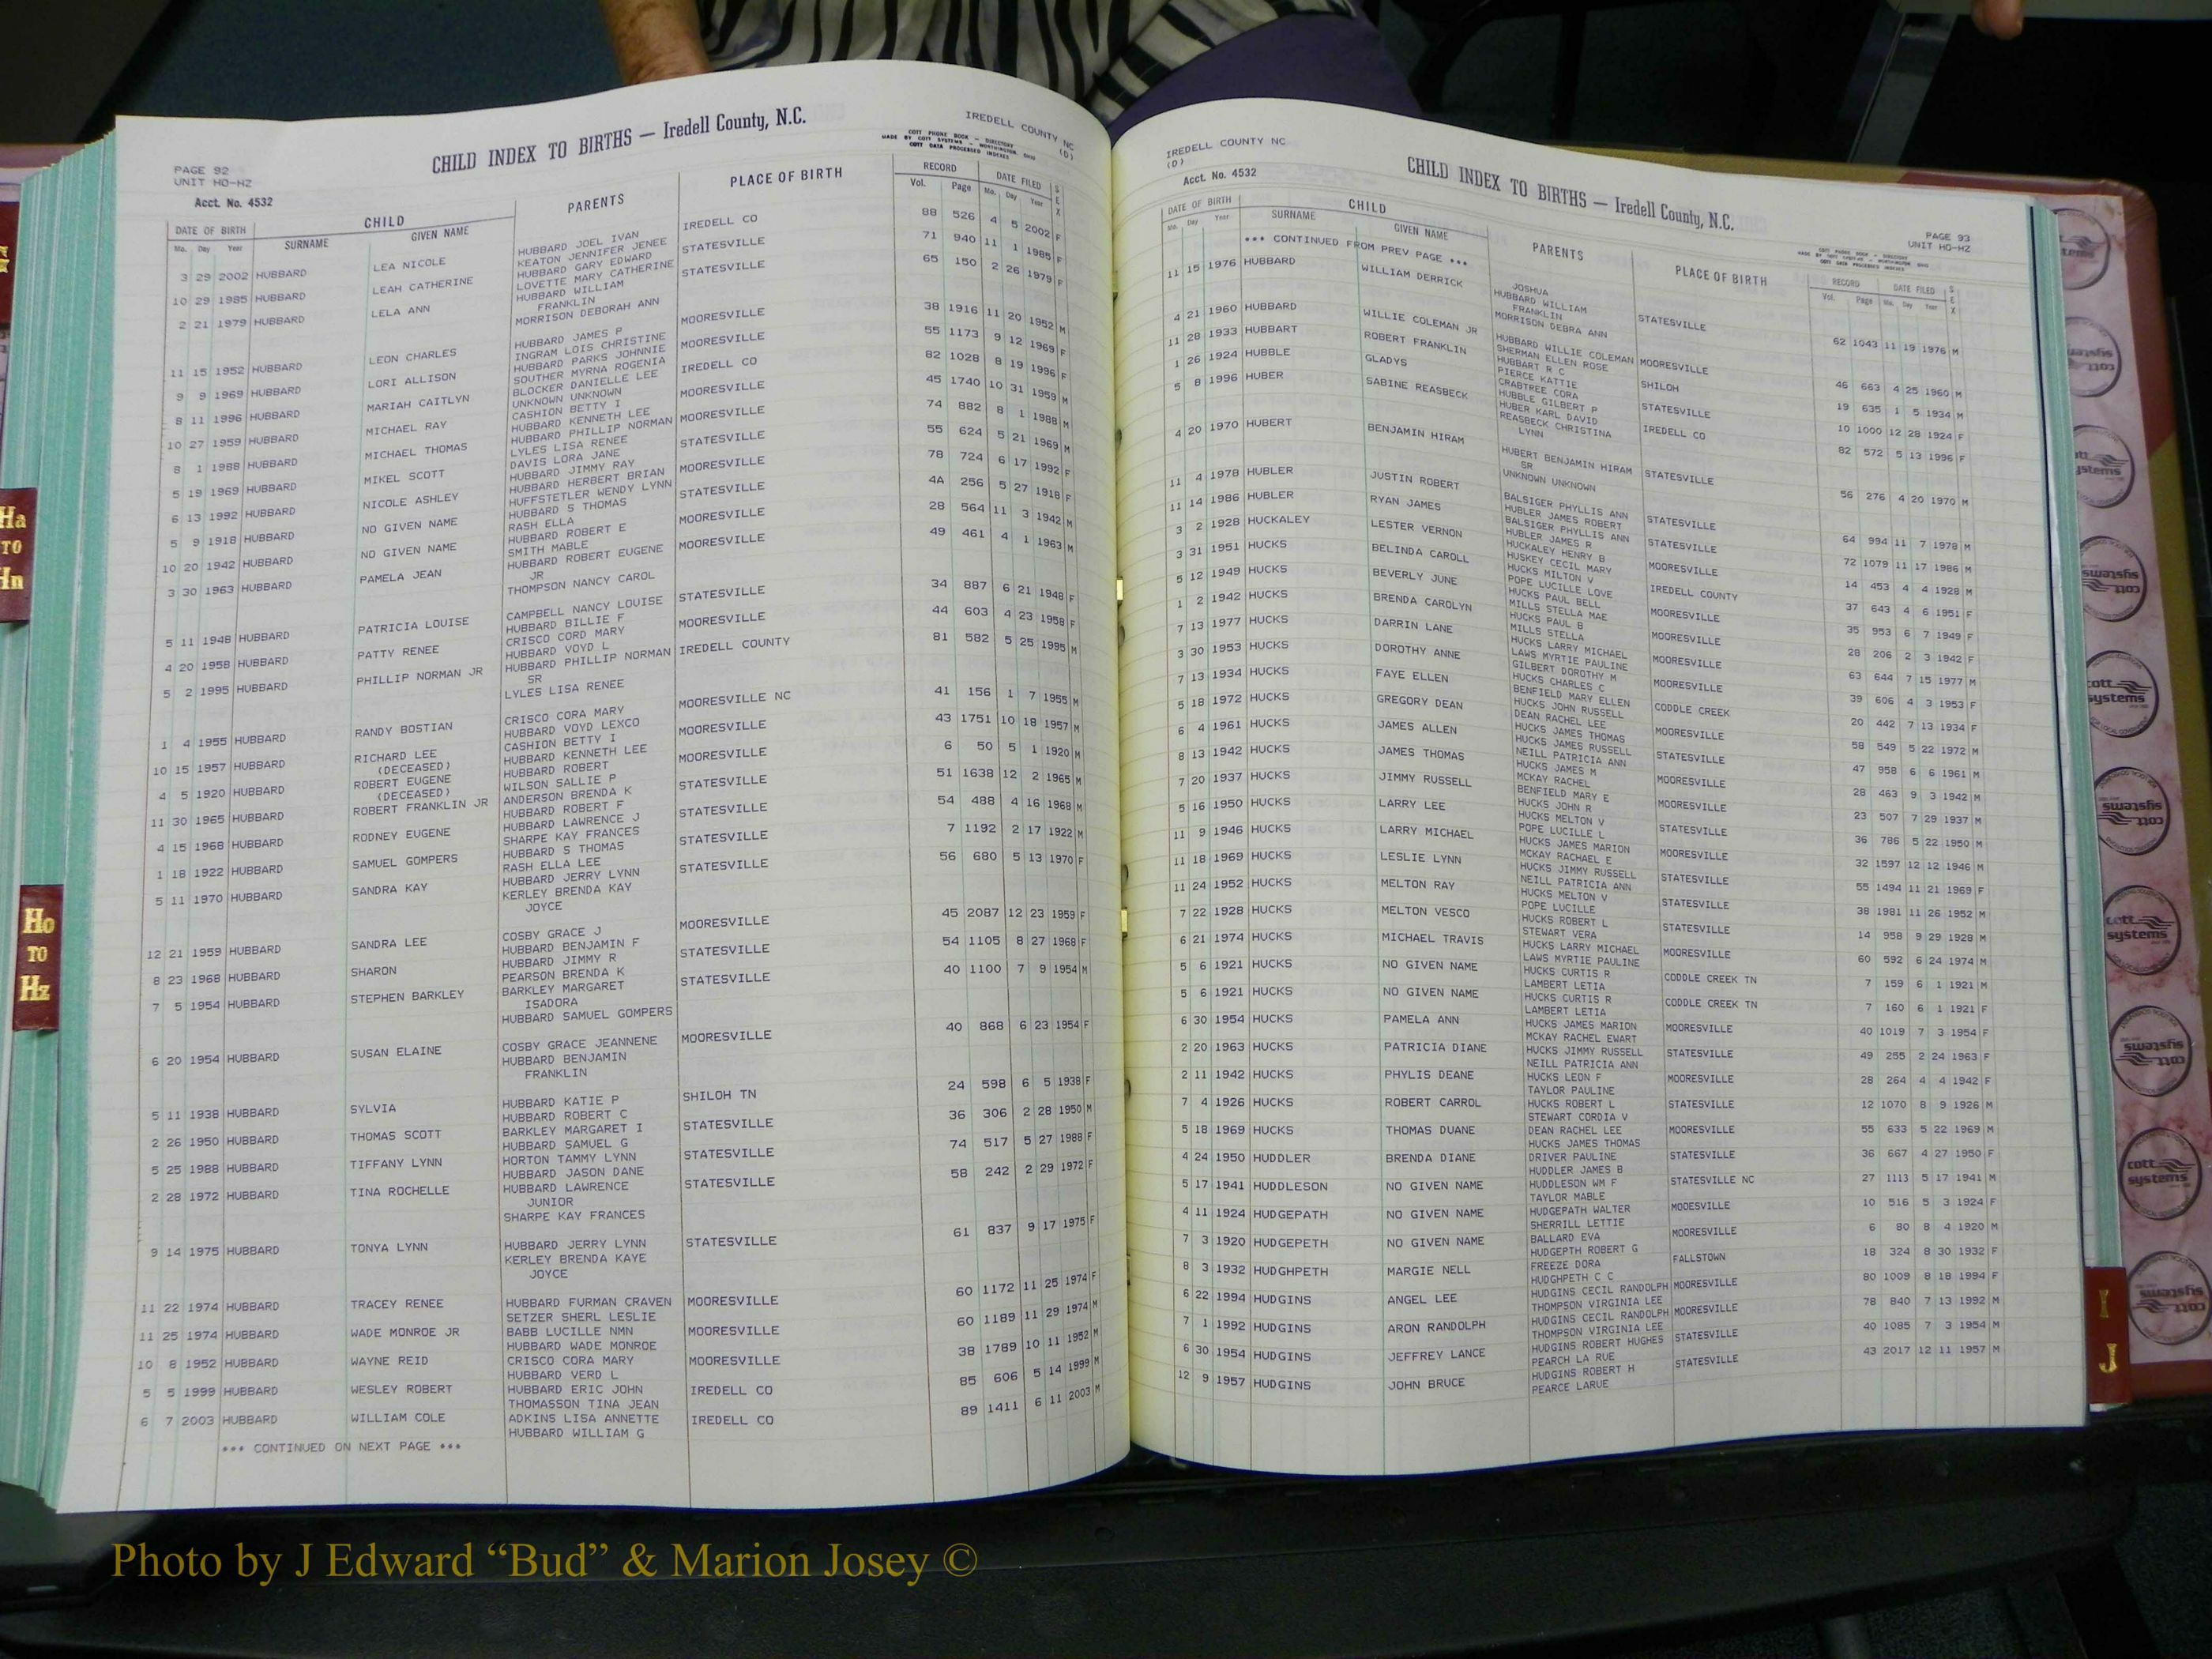 CHILD INDEX TO BIRTHS — Iredell County, N.C.
IREDELL COUNTY NC
(D)
COTT PHONE BOOK - DIRECTORY
MADE BY COTT SYSTEMS - WORTHINGTON, OHIO
COTT DATA PROCESSED INDEXES
PAGE 92
UNIT HO-HZ
Acct. No. 4532
DATE OF BIRTH CHILD PARENTS PLACE OF BIRTH RECORD DATE FILED SEX
Mo. Day Year SURNAME GIVEN NAME Vol. Page Mo. Day Year
3 29 2002 HUBBARD LEA NICOLE HUBBARD JOEL IVAN IREDELL CO 88 526 4 5 2002 F
KEATON JENNIFER JENEE
10 29 1985 HUBBARD LEAH CATHERINE HUBBARD GARY EDWARD STATESVILLE 71 940 11 1 1985 F
LOVETTE MARY CATHERINE
2 21 1979 HUBBARD LELA ANN HUBBARD WILLIAM STATESVILLE 65 150 2 26 1979 F
FRANKLIN
MORRISON DEBORAH ANN
11 15 1952 HUBBARD LEON CHARLES HUBBARD JAMES P MOORESVILLE 38 1916 11 20 1952 M
INGRAM LOIS CHRISTINE
9 9 1969 HUBBARD LORI ALLISON HUBBARD PARKS JOHNNIE MOORESVILLE 55 1173 9 12 1969 F
SOUTHER MYRNA ROGENIA
8 11 1996 HUBBARD MARIAH CAITLYN BLOCKER DANIELLE LEE IREDELL CO 82 1028 8 19 1996 F
UNKNOWN UNKNOWN
10 27 1959 HUBBARD MICHAEL RAY CASHION BETTY I MOORESVILLE 45 1740 10 31 1959 M
HUBBARD KENNETH LEE
8 1 1988 HUBBARD MICHAEL THOMAS HUBBARD PHILLIP NORMAN MOORESVILLE 74 882 8 1 1988 M
LYLES LISA RENEE
5 19 1969 HUBBARD MIKEL SCOTT DAVIS LORA JANE STATESVILLE 55 624 5 21 1969 M
HUBBARD JIMMY RAY
6 13 1992 HUBBARD NICOLE ASHLEY HUBBARD HERBERT BRIAN MOORESVILLE 78 724 6 17 1992 F
HUFFSTETLER WENDY LYNN
5 9 1918 HUBBARD NO GIVEN NAME HUBBARD S THOMAS STATESVILLE 4A 256 5 27 1918 F
RASH ELLA
10 20 1942 HUBBARD NO GIVEN NAME HUBBARD ROBERT E MOORESVILLE 28 564 11 3 1942 M
SMITH MABLE
3 30 1963 HUBBARD PAMELA JEAN HUBBARD ROBERT EUGENE MOORESVILLE 49 461 4 1 1963 M
JR
THOMPSON NANCY CAROL
5 11 1948 HUBBARD PATRICIA LOUISE CAMPBELL NANCY LOUISE STATESVILLE 34 887 6 21 1948 F
HUBBARD BILLIE F
4 20 1958 HUBBARD PATTY RENEE CRISCO CORD MARY MOORESVILLE 44 603 4 23 1958 F
HUBBARD VOYD L
5 2 1995 HUBBARD PHILLIP NORMAN JR HUBBARD PHILLIP NORMAN IREDELL COUNTY 81 582 5 25 1995 M
SR
LYLES LISA RENEE
1 4 1955 HUBBARD RANDY BOSTIAN CRISCO CORA MARY MOORESVILLE NC 41 156 1 7 1955 M
HUBBARD VOYD LEXCO
10 15 1957 HUBBARD RICHARD LEE CASHION BETTY I MOORESVILLE 43 1751 10 18 1957 M
(DECEASED) HUBBARD KENNETH LEE
4 5 1920 HUBBARD ROBERT EUGENE HUBBARD ROBERT MOORESVILLE 6 50 5 1 1920 M
(DECEASED) WILSON SALLIE P
11 30 1965 HUBBARD ROBERT FRANKLIN JR ANDERSON BRENDA K STATESVILLE 51 1638 12 2 1965 M
HUBBARD ROBERT F
4 15 1968 HUBBARD RODNEY EUGENE HUBBARD LAWRENCE J STATESVILLE 54 488 4 16 1968 M
SHARPE KAY FRANCES
1 18 1922 HUBBARD SAMUEL GOMPERS HUBBARD S THOMAS STATESVILLE 7 1192 2 17 1922 M
RASH ELLA LEE
5 11 1970 HUBBARD SANDRA KAY HUBBARD JERRY LYNN STATESVILLE 56 680 5 13 1970 F
KERLEY BRENDA KAY
JOYCE
12 21 1959 HUBBARD SANDRA LEE COSBY GRACE J MOORESVILLE 45 2087 12 23 1959 F
HUBBARD BENJAMIN F
8 23 1968 HUBBARD SHARON HUBBARD JIMMY R STATESVILLE 54 1105 8 27 1968 F
PEARSON BRENDA K
7 5 1954 HUBBARD STEPHEN BARKLEY BARKLEY MARGARET STATESVILLE 40 1100 7 9 1954 M
ISADORA
HUBBARD SAMUEL GOMPERS
6 20 1954 HUBBARD SUSAN ELAINE COSBY GRACE JEANNENE MOORESVILLE 40 868 6 23 1954 F
HUBBARD BENJAMIN
FRANKLIN
5 11 1938 HUBBARD SYLVIA HUBBARD KATIE P SHILOH TN 24 598 6 5 1938 F
HUBBARD ROBERT C
2 26 1950 HUBBARD THOMAS SCOTT BARKLEY MARGARET I STATESVILLE 36 306 2 28 1950 M
HUBBARD SAMUEL G
5 25 1988 HUBBARD TIFFANY LYNN HORTON TAMMY LYNN STATESVILLE 74 517 5 27 1988 F
HUBBARD JASON DANE
2 28 1972 HUBBARD TINA ROCHELLE HUBBARD LAWRENCE STATESVILLE 58 242 2 29 1972 F
JUNIOR
SHARPE KAY FRANCES
9 14 1975 HUBBARD TONYA LYNN HUBBARD JERRY LYNN STATESVILLE 61 837 9 17 1975 F
KERLEY BRENDA KAYE
JOYCE
11 22 1974 HUBBARD TRACEY RENEE HUBBARD FURMAN CRAVEN MOORESVILLE 60 1172 11 25 1974 F
SETZER SHERL LESLIE
11 25 1974 HUBBARD WADE MONROE JR BABB LUCILLE NMN MOORESVILLE 60 1189 11 29 1974 M
HUBBARD WADE MONROE
10 8 1952 HUBBARD WAYNE REID CRISCO CORA MARY MOORESVILLE 38 1789 10 11 1952 M
HUBBARD VERD L
5 5 1999 HUBBARD WESLEY ROBERT HUBBARD ERIC JOHN IREDELL CO 85 606 5 14 1999 M
THOMASSON TINA JEAN
6 7 2003 HUBBARD WILLIAM COLE ADKINS LISA ANNETTE IREDELL CO 89 1411 6 11 2003 M
HUBBARD WILLIAM G
*** CONTINUED ON NEXT PAGE ***
IREDELL COUNTY NC
(D)
Acct. No. 4532
CHILD INDEX TO BIRTHS — Iredell County, N.C.
PAGE 93
UNIT HO-HZ
COTT PHONE BOOK - DIRECTORY
MADE BY COTT SYSTEMS - WORTHINGTON, OHIO
COTT DATA PROCESSED INDEXES
DATE OF BIRTH CHILD PARENTS PLACE OF BIRTH RECORD DATE FILED SEX
Mo. Day Year SURNAME GIVEN NAME Vol. Page Mo. Day Year
*** CONTINUED FROM PREV PAGE ***
11 15 1976 HUBBARD WILLIAM DERRICK JOSHUA
HUBBARD WILLIAM STATESVILLE 62 1043 11 19 1976 M
FRANKLIN
MORRISON DEBRA ANN
4 21 1960 HUBBARD WILLIE COLEMAN JR HUBBARD WILLIE COLEMAN MOORESVILLE 46 663 4 25 1960 M
SHERMAN ELLEN ROSE
11 28 1933 HUBBART ROBERT FRANKLIN HUBBART R C SHILOH 19 635 1 5 1934 M
PIERCE KATTIE
1 26 1924 HUBBLE GLADYS CRABTREE CORA STATESVILLE 10 1000 12 28 1924 F
HUBBLE GILBERT P
5 8 1996 HUBER SABINE REASBECK HUBER KARL DAVID IREDELL CO 82 572 5 13 1996 F
REASBECK CHRISTINA
LYNN
4 20 1970 HUBERT BENJAMIN HIRAM HUBERT BENJAMIN HIRAM STATESVILLE 56 276 4 20 1970 M
SR
UNKNOWN UNKNOWN
11 4 1978 HUBLER JUSTIN ROBERT BALSIGER PHYLLIS ANN STATESVILLE 64 994 11 7 1978 M
HUBLER JAMES ROBERT
11 14 1986 HUBLER RYAN JAMES BALSIGER PHYLLIS ANN STATESVILLE 72 1079 11 17 1986 M
HUBLER JAMES R
3 2 1928 HUCKALEY LESTER VERNON HUCKALEY HENRY B MOORESVILLE 14 453 4 4 1928 M
HUSKEY CECIL MARY
3 31 1951 HUCKS BELINDA CAROLL HUCKS MILTON V IREDELL COUNTY 37 643 4 6 1951 F
POPE LUCILLE LOVE
5 12 1949 HUCKS BEVERLY JUNE HUCKS PAUL BELL MOORESVILLE 35 953 6 7 1949 F
MILLS STELLA MAE
1 2 1942 HUCKS BRENDA CAROLYN HUCKS PAUL B MOORESVILLE 28 206 2 3 1942 F
MILLS STELLA
7 13 1977 HUCKS DARRIN LANE HUCKS LARRY MICHAEL MOORESVILLE 63 644 7 15 1977 M
LAWS MYRTIE PAULINE
3 30 1953 HUCKS DOROTHY ANNE GILBERT DOROTHY M MOORESVILLE 39 606 4 3 1953 F
HUCKS CHARLES C
7 13 1934 HUCKS FAYE ELLEN BENFIELD MARY ELLEN CODDLE CREEK 20 442 7 13 1934 F
HUCKS JOHN RUSSELL
5 18 1972 HUCKS GREGORY DEAN DEAN RACHEL LEE MOORESVILLE 58 549 5 22 1972 M
HUCKS JAMES THOMAS
6 4 1961 HUCKS JAMES ALLEN HUCKS JAMES RUSSELL STATESVILLE 47 958 6 6 1961 M
NEILL PATRICIA ANN
8 13 1942 HUCKS JAMES THOMAS HUCKS JAMES M MOORESVILLE 28 463 9 3 1942 M
MCKAY RACHEL
7 20 1937 HUCKS JIMMY RUSSELL BENFIELD MARY E MOORESVILLE 23 507 7 29 1937 M
HUCKS JOHN R
5 16 1950 HUCKS LARRY LEE HUCKS MELTON V STATESVILLE 36 786 5 22 1950 M
POPE LUCILLE L
11 9 1946 HUCKS LARRY MICHAEL HUCKS JAMES MARION MOORESVILLE 32 1597 12 12 1946 M
MCKAY RACHAEL E
11 18 1969 HUCKS LESLIE LYNN HUCKS JIMMY RUSSELL STATESVILLE 55 1494 11 21 1969 F
NEILL PATRICIA ANN
11 24 1952 HUCKS MELTON RAY HUCKS MELTON V STATESVILLE 38 1981 11 26 1952 M
POPE LUCILLE
7 22 1928 HUCKS MELTON VESCO HUCKS ROBERT L STATESVILLE 14 958 9 29 1928 M
STEWART VERA
6 21 1974 HUCKS MICHAEL TRAVIS HUCKS LARRY MICHAEL MOORESVILLE 60 592 6 24 1974 M
LAWS MYRTIE PAULINE
5 6 1921 HUCKS NO GIVEN NAME HUCKS CURTIS R CODDLE CREEK TN 7 159 6 1 1921 M
LAMBERT LETIA
5 6 1921 HUCKS NO GIVEN NAME HUCKS CURTIS R CODDLE CREEK TN 7 160 6 1 1921 F
LAMBERT LETIA
6 30 1954 HUCKS PAMELA ANN HUCKS JAMES MARION MOORESVILLE 40 1019 7 3 1954 F
MCKAY RACHEL EWART
2 20 1963 HUCKS PATRICIA DIANE HUCKS JIMMY RUSSELL STATESVILLE 49 255 2 24 1963 F
NEILL PATRICIA ANN
2 11 1942 HUCKS PHYLIS DEANE HUCKS LEON F MOORESVILLE 28 264 4 4 1942 F
TAYLOR PAULINE
7 4 1926 HUCKS ROBERT CARROL HUCKS ROBERT L STATESVILLE 12 1070 8 9 1926 M
STEWART CORDIA V
5 18 1969 HUCKS THOMAS DUANE DEAN RACHEL LEE MOORESVILLE 55 633 5 22 1969 M
HUCKS JAMES THOMAS
4 24 1950 HUDDLER BRENDA DIANE DRIVER PAULINE STATESVILLE 36 667 4 27 1950 F
HUDDLER JAMES B
5 17 1941 HUDDLESON NO GIVEN NAME HUDDLESON WM F STATESVILLE NC 27 1113 5 17 1941 M
TAYLOR MABLE
4 11 1924 HUDGEPATH NO GIVEN NAME HUDGEPATH WALTER MODESVILLE 10 516 5 3 1924 F
SHERRILL LETTIE
7 3 1920 HUDGEPETH NO GIVEN NAME BALLARD EVA MOORESVILLE 6 80 8 4 1920 M
HUDGEPTH ROBERT G
8 3 1932 HUDGHPETH MARGIE NELL FREEZE DORA FALLSTOWN 18 324 8 30 1932 F
HUDGHPETH C C
6 22 1994 HUDGINS ANGEL LEE HUDGINS CECIL RANDOLPH MOORESVILLE 80 1009 8 18 1994 F
THOMPSON VIRGINIA LEE
7 1 1992 HUDGINS ARON RANDOLPH HUDGINS CECIL RANDOLPH MOORESVILLE 78 840 7 13 1992 M
THOMPSON VIRGINIA LEE
6 30 1954 HUDGINS JEFFREY LANCE HUDGINS ROBERT HUGHES STATESVILLE 40 1085 7 3 1954 M
PEARCH LA RUE
12 9 1957 HUDGINS JOHN BRUCE HUDGINS ROBERT H STATESVILLE 43 2017 12 11 1957 M
PEARCE LARUE
Ha
TO
Hn
Ho
TO
Hz
I
J
cott systems
Photo by J Edward “Bud” & Marion Josey ©